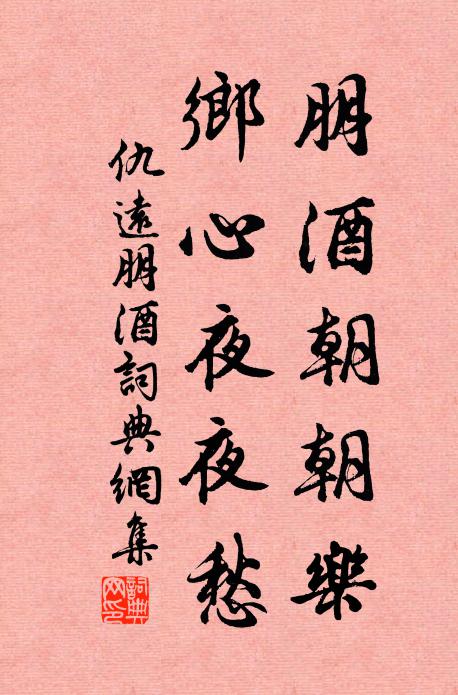 朋酒朝朝樂
鄉心夜夜愁
仇遠朋酒詞典網集
詞典網印